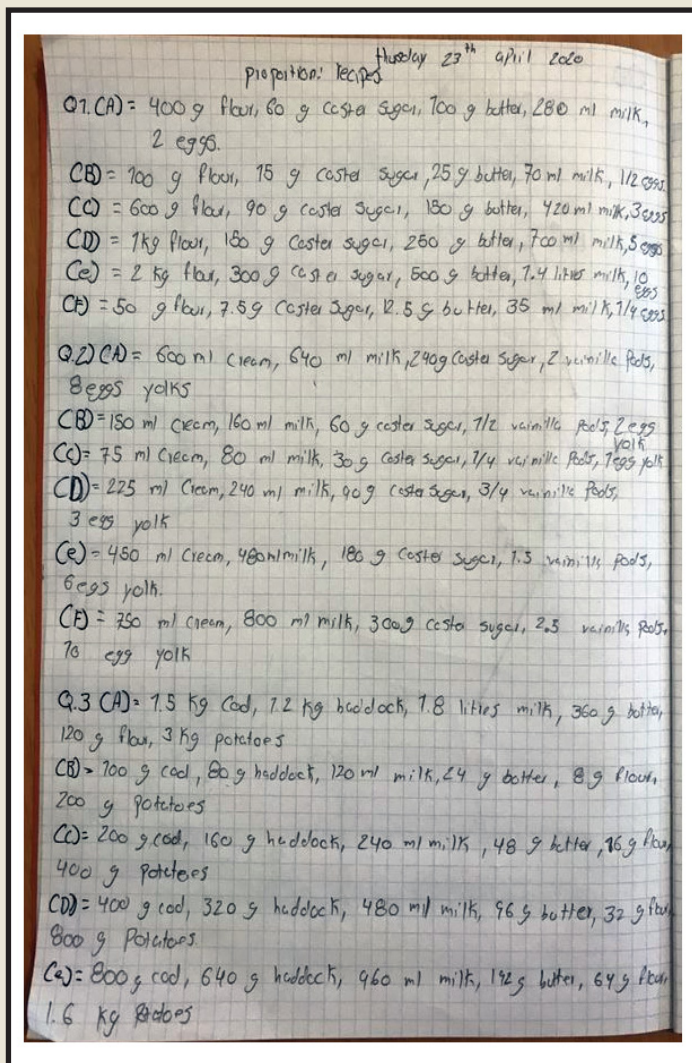 thusday 23th april 2020
proportion: recipes
Q1.(A) = 400 g flour, 60 g caster sugar, 100 g butter, 280 ml milk,
2 eggs.
(B) = 100 g flour, 15 g caster sugar, 25 g butter, 70 ml milk, 1/2 eggs
(C) = 600 g flour, 90 g caster sugar, 150 g butter, 420 ml milk, 3 eggs
(D) = 1kg flour, 150 g caster sugar, 250 g butter, 700 ml milk, 5 eggs
(e) = 2 kg flour, 300 g caster sugar, 500 g butter, 1.4 litres milk, 10
eggs
(F) = 50 g flour, 7.5 g Caster Sugar, 12.5 g butter, 35 ml milk, 1/4 eggs
Q.2) (A) = 600 ml cream, 640 ml milk, 240g caster sugar, 2 vainilla Pods,
8 eggs yolks
(B) = 150 ml cream, 160 ml milk, 60 g caster sugar, 1/2 vainilla Pods, 2 egg
yolk
(C) = 75 ml cream, 80 ml milk, 30 g caster sugar, 1/4 vainilla Pods, 1 egg yolk
(D) = 225 ml cream, 240 ml milk, 90g caster sugar, 3/4 vainilla Pods,
3 egg yolk
(e) = 450 ml cream, 480ml milk, 180 g caster sugar, 1.5 vainilla Pods,
6 egs yolk.
(F) = 750 ml cream, 800 ml milk, 300g caster sugar, 2.5 vainilla Pods,
10 egg yolk
Q.3 (A) = 1.5 kg Cod, 1.2 kg haddock, 1.8 litres milk, 360 g butter,
120 g flour, 3 kg potatoes
(B) = 100 g cod, 80 g haddock, 120 ml milk, 24 g butter, 8 g flour,
200 g potatoes
(C) = 200 g cod, 160 g haddock, 240 ml milk, 48 g butter, 16 g flour,
400 g potatoes
(D) = 400 g cod, 320 g haddock, 480 ml milk, 96 g butter, 32 g flour
800 g Potatoes.
(e) = 800 g cod, 640 g haddock, 960 ml milk, 192 g butter, 64 g flour,
1.6 kg Potatoes